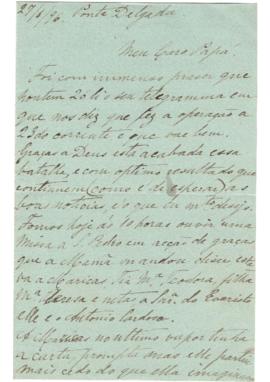 27/6/96 Ponta Delgada
Meu Caro Papá
Foi com immenso prazer que
hontem 20 li o seu telegramma em
que nos diz que fez a operação a
23 do corrente e que vai bem.
Graças a Deus está acabada essa
batalha, e com optimo resultado que
continuem (como é de esperar) as
boas noticias, é o que tu mto desejo.
Fomos hoje ás 10 horas ouvir uma
Missa a S. Pedro em acção de graças
que a Mamã mandou dizer este
va a Maricas, Tia Ma Teodora, filha
Ma Teresa e netas a Snra do Evaristo
elle e o Antonio Cardoso.
A Maricas no ultimo vapor tinha
a carta prompta mas elle partiu
mais cedo do que ella imaginava